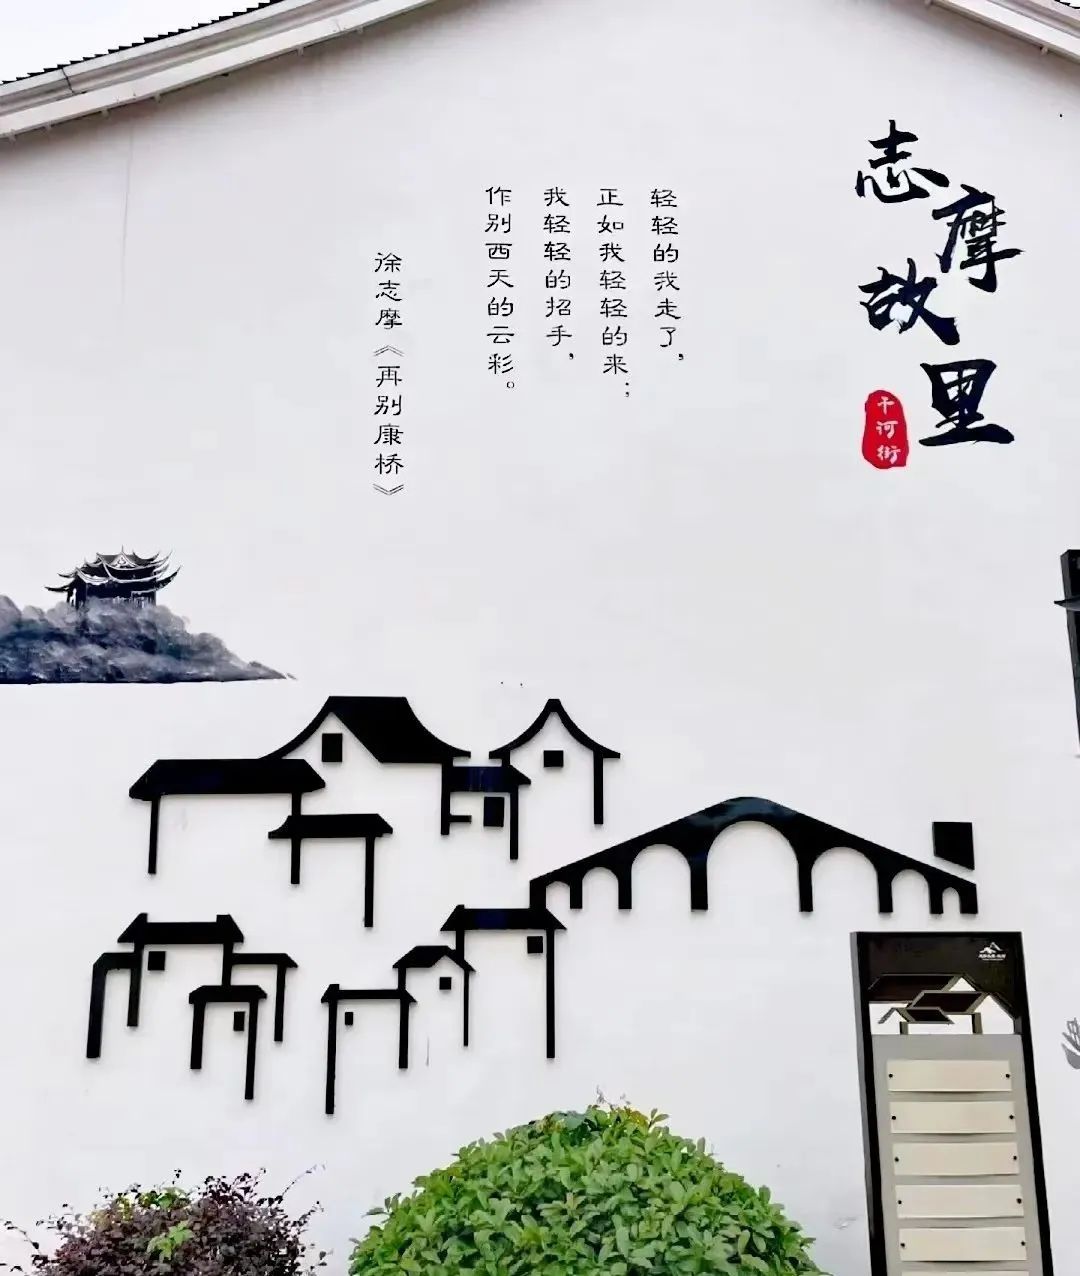 志摩故里
干河街
轻轻的我走了，
正如我轻轻的来；
我轻轻的招手，
作别西天的云彩。
徐志摩《再别康桥》